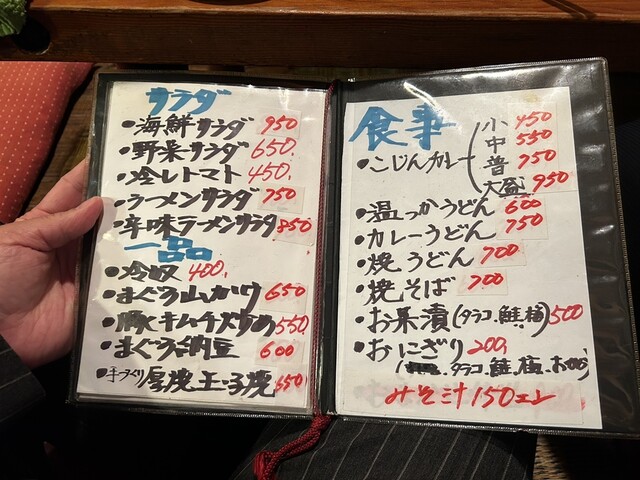 サラダ
・海鮮サラダ 950
・野菜サラダ 650.
・冷しトマト 450.
・ラーメンサラダ 750
・辛味ラーメンサラダ 850
一品
・冷奴 400.
・まぐろ山かけ 650
・豚キムチ炒め 550.
・まぐろ納豆 600
・手づくり厚焼玉子焼 650
食事
・こじんカレー
小 450
中 550
普 750
大盛 950
・温つかうどん 600
・カレーうどん 750
・焼うどん 700
・焼そば 700
・お茶漬(タラコ.鮭.梅) 500
・おにぎり 200.
タラコ.鮭.梅.おかか)
みそ汁 150エン